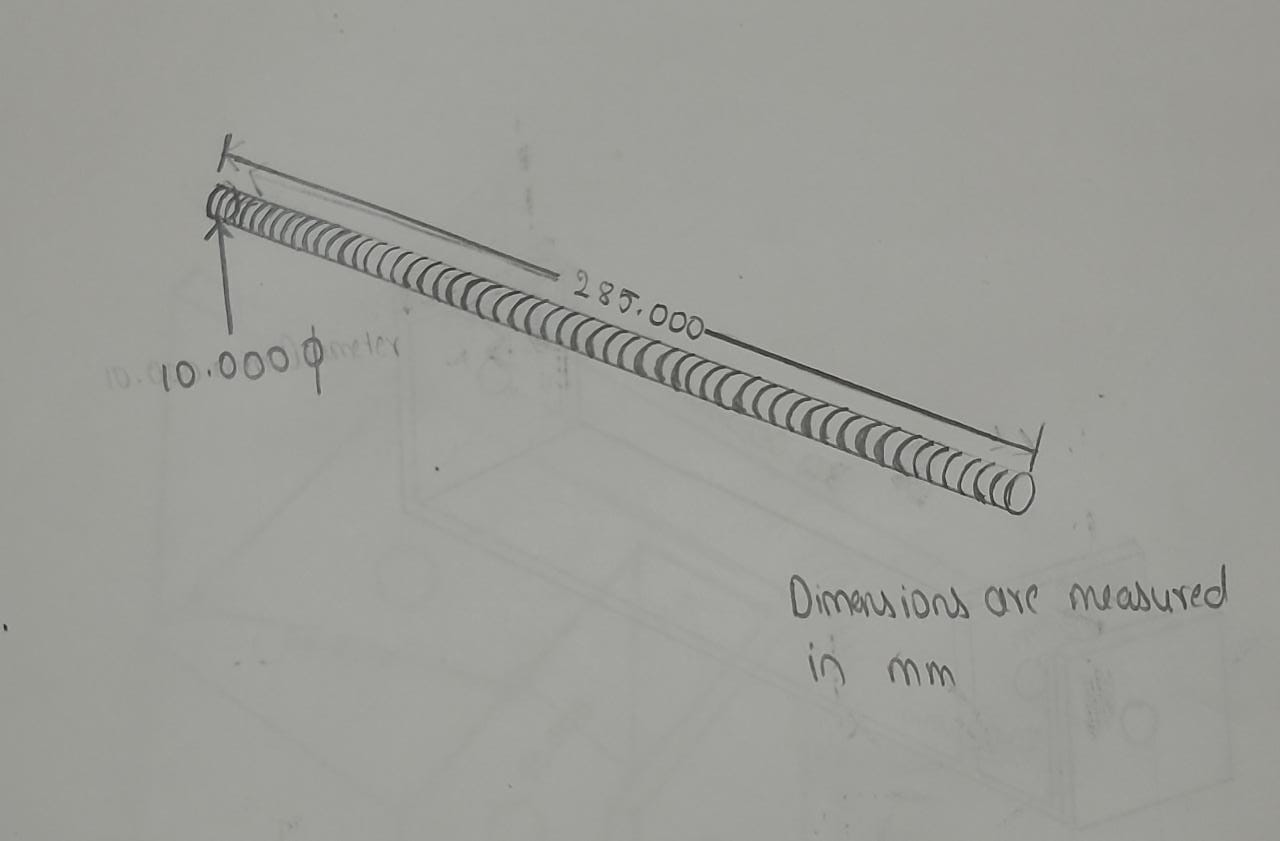 285.000
10.000 ϕ
Dimensions are measured
in mm